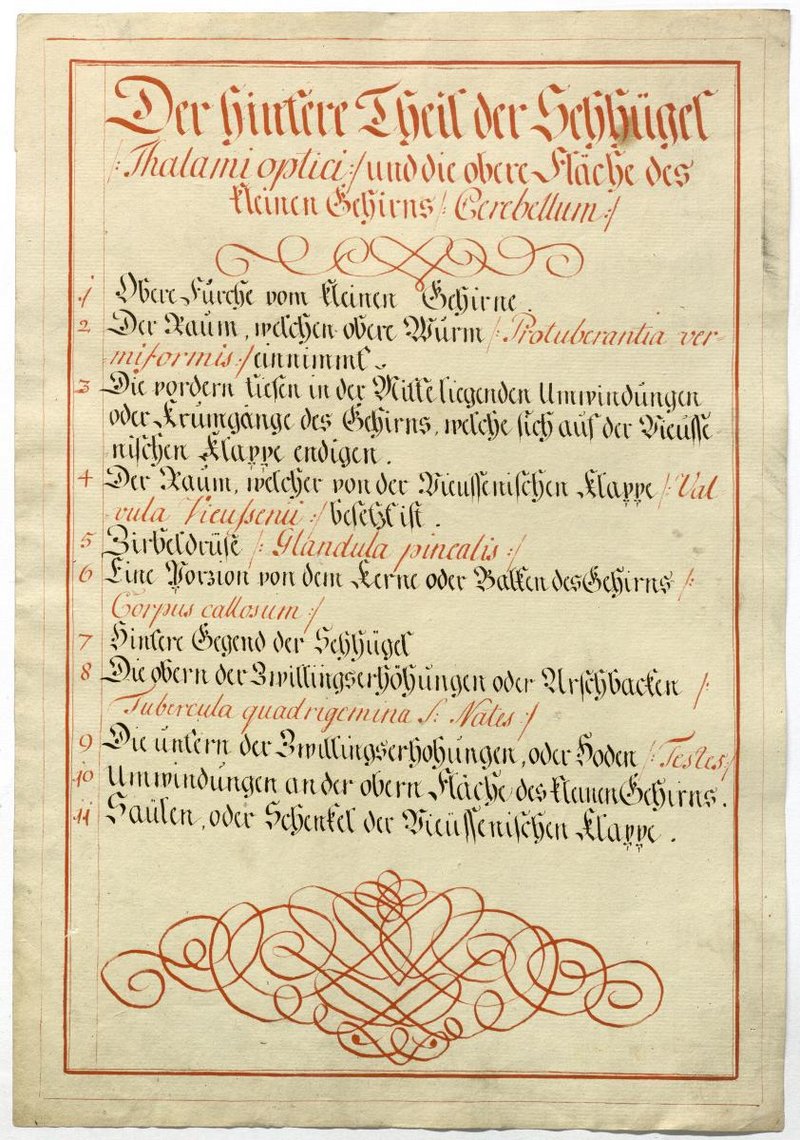 Der hintere Theil der Sehhügel
/: Thalami optici :/ und die obere Fläche des
kleinen Gehirns /: Cerebellum :/
1 Obere Fürche vom kleinen Gehirne.
2 Der Raum, welchen obere Wurm /: Protuberantia ver-
miformis :/ einnimmt.
3 Die vordern tiefen in der Mitte liegenden Umwindungen
oder Krumgänge des Gehirns, welche sich auf der Vieusse
nischen Klappe endigen.
4 Der Raum, welcher von der Vieussenischen Klappe /: Val
vula Vieussenii :/ besetzt ist.
5 Zirbeldrüse /: Glandula pinealis :/
6 Eine Porzion von dem Kerne oder Balken des Gehirns /:
Corpus callosum :/
7 Hintere Gegend der Sehhügel
8 Die obern der Zwillingserhöhungen oder Arschbacken /:
Tubercula quadrigemina S: Nates :/
9 Die untern der Zwillingserhohungen, oder Hoden /: Testes :/
10 Umwindungen an der obern Fläche des kleinen Gehirns.
11 Saülen, oder Schenkel der Vieüssenischen Klappe.